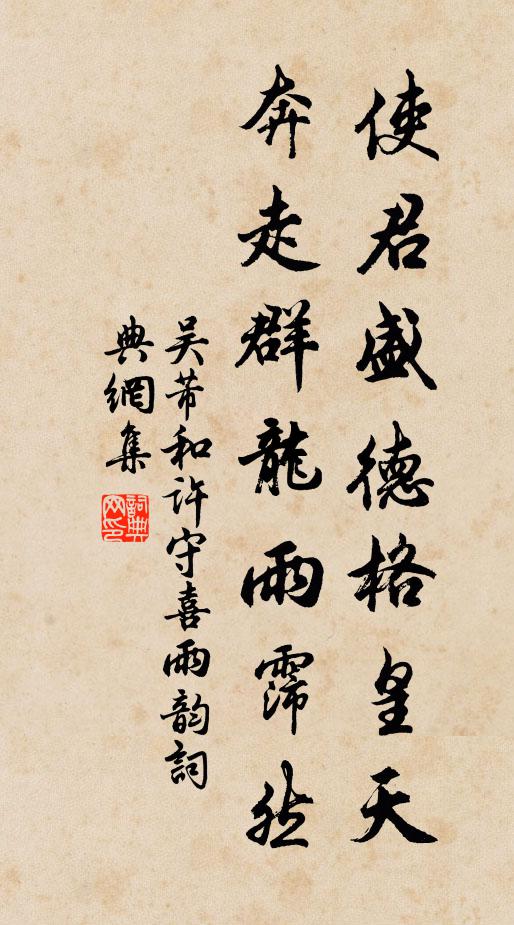 使君盛德格皇天
奔走群龍雨霈然
吴芾和許守喜雨韵詞
典網集
詞典
网印